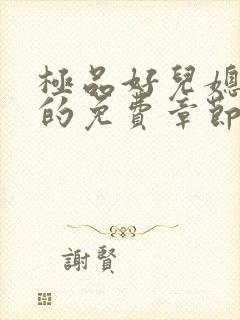 極品好兒媳
的免費章節
謝賢